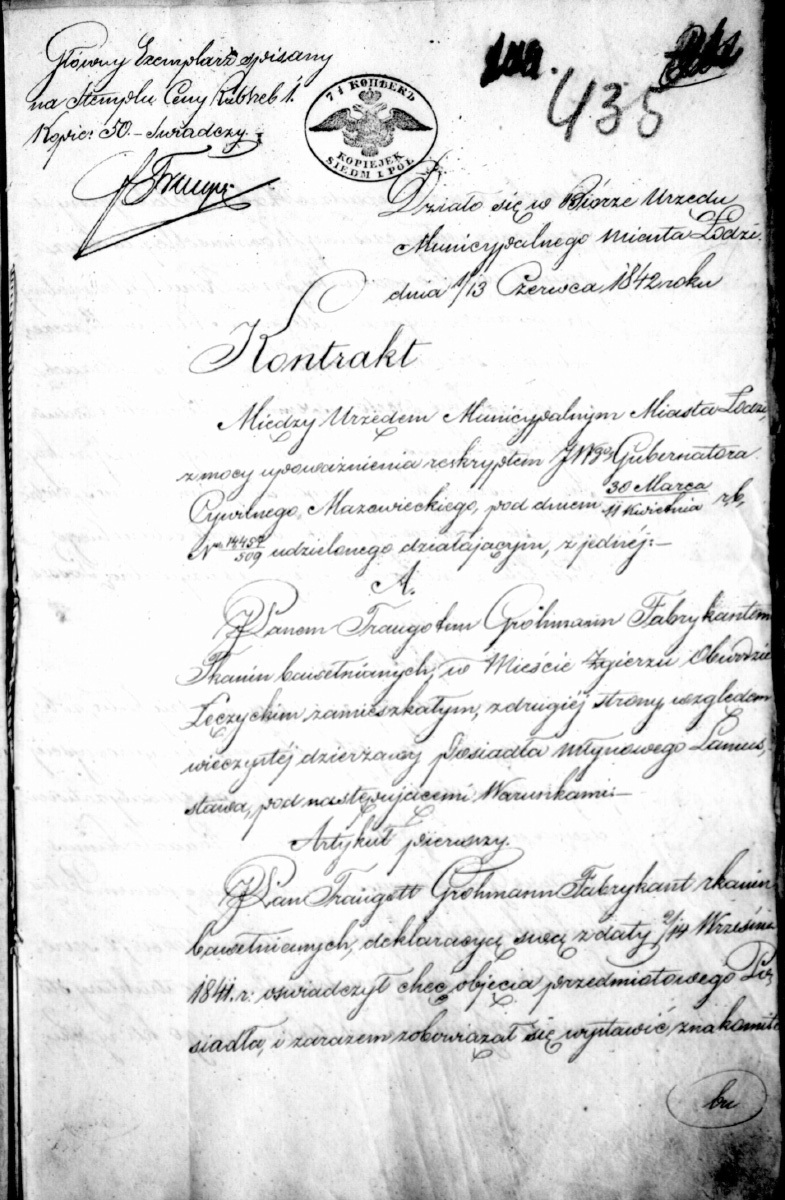 Główny Exemplarz spisany
na Stemplu Ceny Rubsreb 1.
Kopie: 50.– świadczy.
7½ КОПѢЕКЪ
KOPIEJEK
SIEDM I PÓŁ
435
Działo się w Biórze Urzędu
Municypalnego Miasta Łodzi.
dnia 1/13 Czerwca 1842 roku
Kontrakt
Między Urzędem Municypalnym Miasta Łodzi,
z mocy upoważnienia reskryptem JWgo Gubernatora
Cywilnego Mazowieckiego, pod dniem 30 Marca / 11 Kwietnia r.b.
No 14457/509 udzielonego działającym, z jednéj:–
A.
JPanem Traugotem Gröhmann Fabrykantem
Tkanin bawełnianych, w Mieście Zgierzu Obwodzie
Łęczyckim zamieszkałym, z drugiéj strony względem
wieczystéj dzierżawy Posiadła młynowego Lamus,
stawa, pod następującemi Warunkami:–
Artykuł pierwszy.
JPan Traugott Gröhmann Fabrykant tkanin
bawełnianych, deklaracyą swą z daty 2/14 Wrześnie
1841. r. oświadczył chęć objęcia przedmiotowego Po,
siadła, i zarazem zobowiązał się wystawić, znakomite
bu